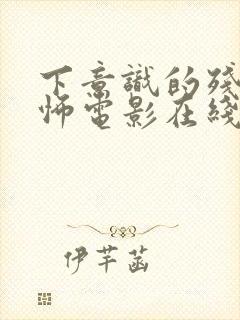 下意識的殘
怖電影在綫
伊芊菡